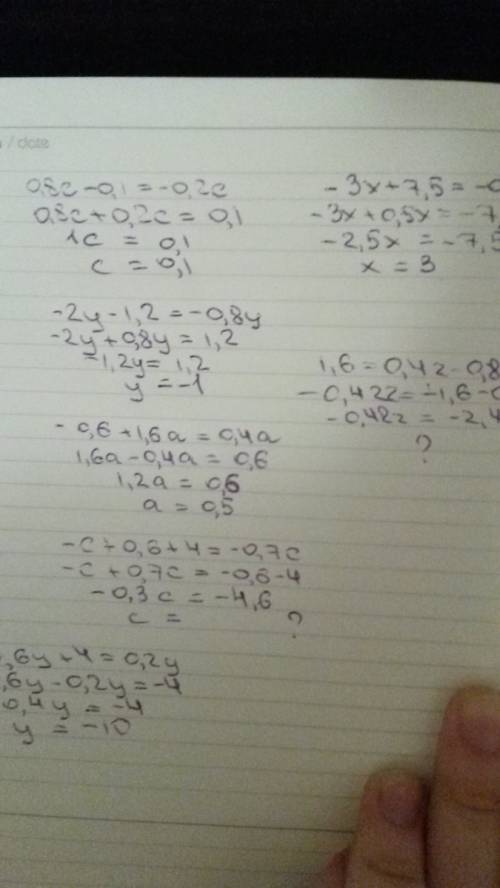 / date
0,8c - 0,1 = -0,2c
0,8c + 0,2c = 0,1
1c = 0,1
c = 0,1
-2y - 1,2 = -0,8y
-2y + 0,8y = 1,2
-1,2y = 1,2
y = -1
-0,6 + 1,6a = 0,4a
1,6a - 0,4a = 0,6
1,2a = 0,6
a = 0,5
-c + 0,6 + 4 = -0,7c
-c + 0,7c = -0,6 - 4
-0,3c = -4,6
c = ?
,6y + 4 = 0,2y
,6y - 0,2y = -4
0,4y = -4
y = -10
-3x + 7,5 = -0
-3x + 0,5x = -7,
-2,5x = -7,5
x = 3
1,6 = 0,4z - 0,8
-0,42z = -1,6 - 0
-0,42z = -2,4
?